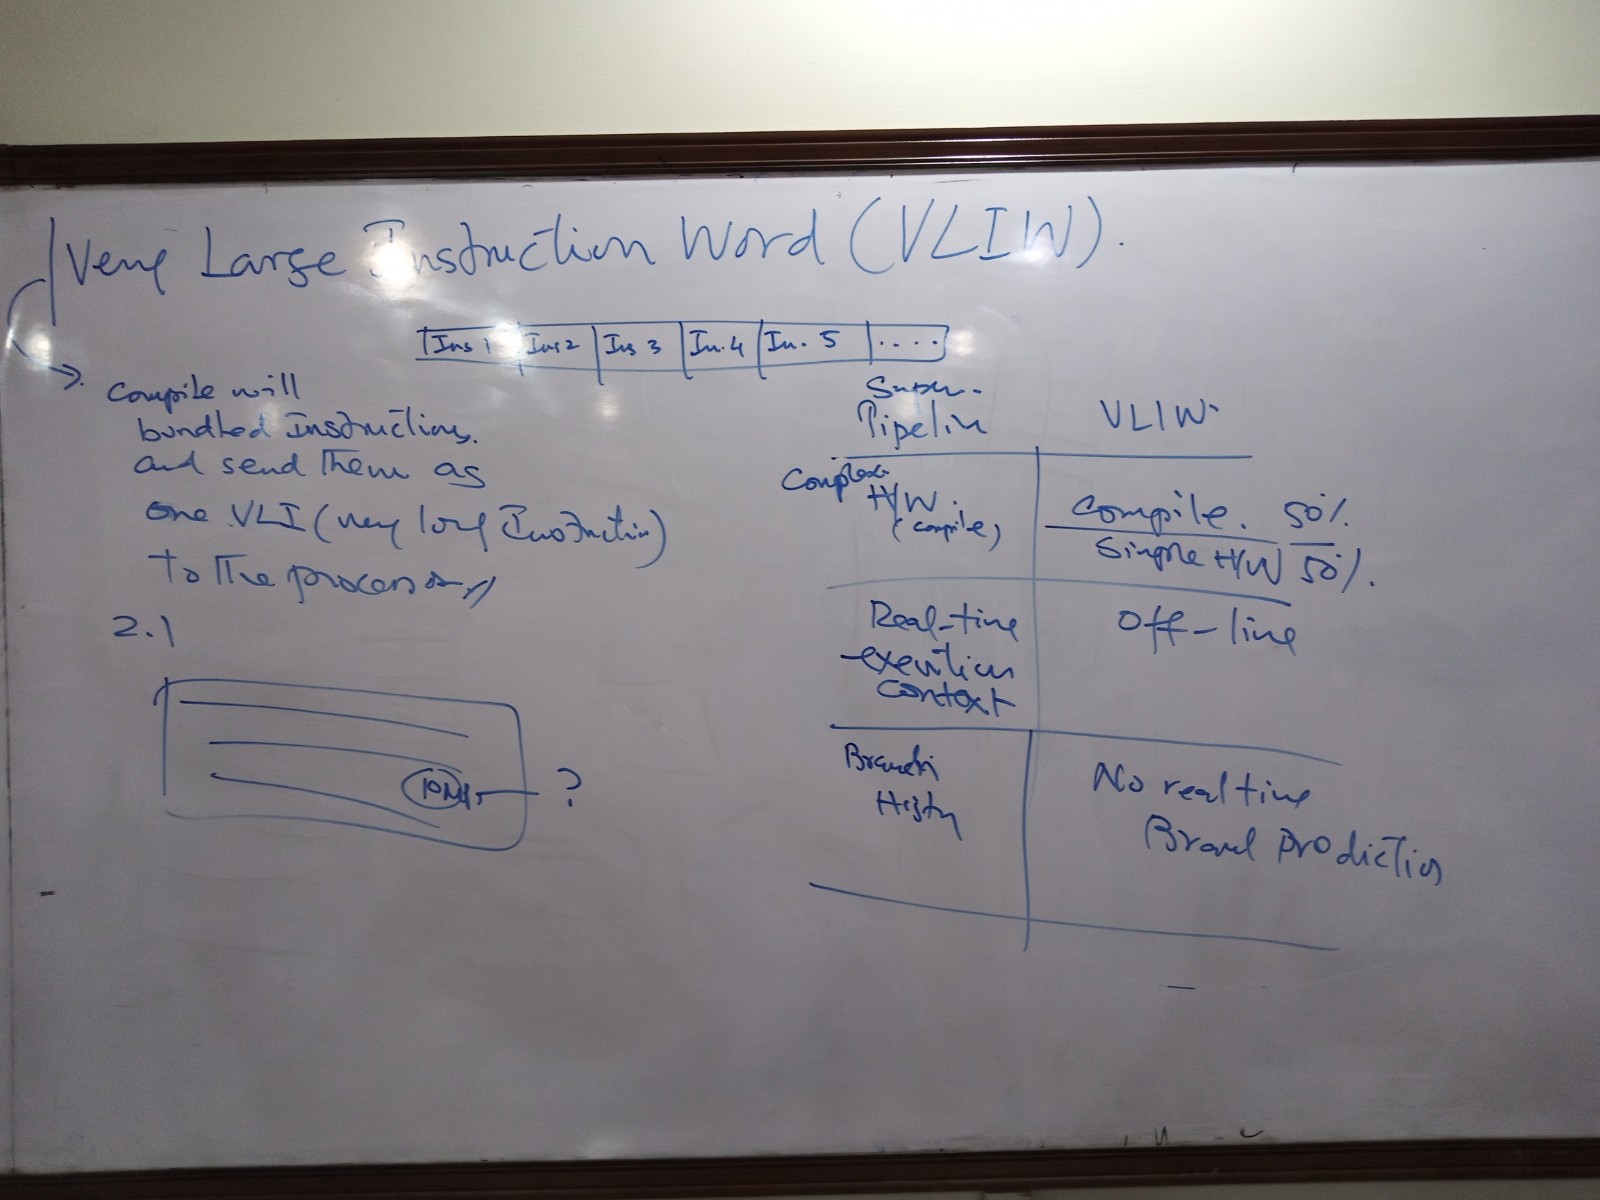 Very Large Instruction Word (VLIW).
Ins 1 Ins 2 Ins 3 In. 4 In. 5 ....
Compile will
bundled Instructions.
and send them as
one VLI (very long Instruction)
to the processor
2.1
?
Super-
Pipelin VLIW
Complex
H/W.
(compile)
Compile. 50%.
Simple H/W 50%.
Real-time
execution
context
Off-line
Branch
Histy
No real time
Branch Prediction